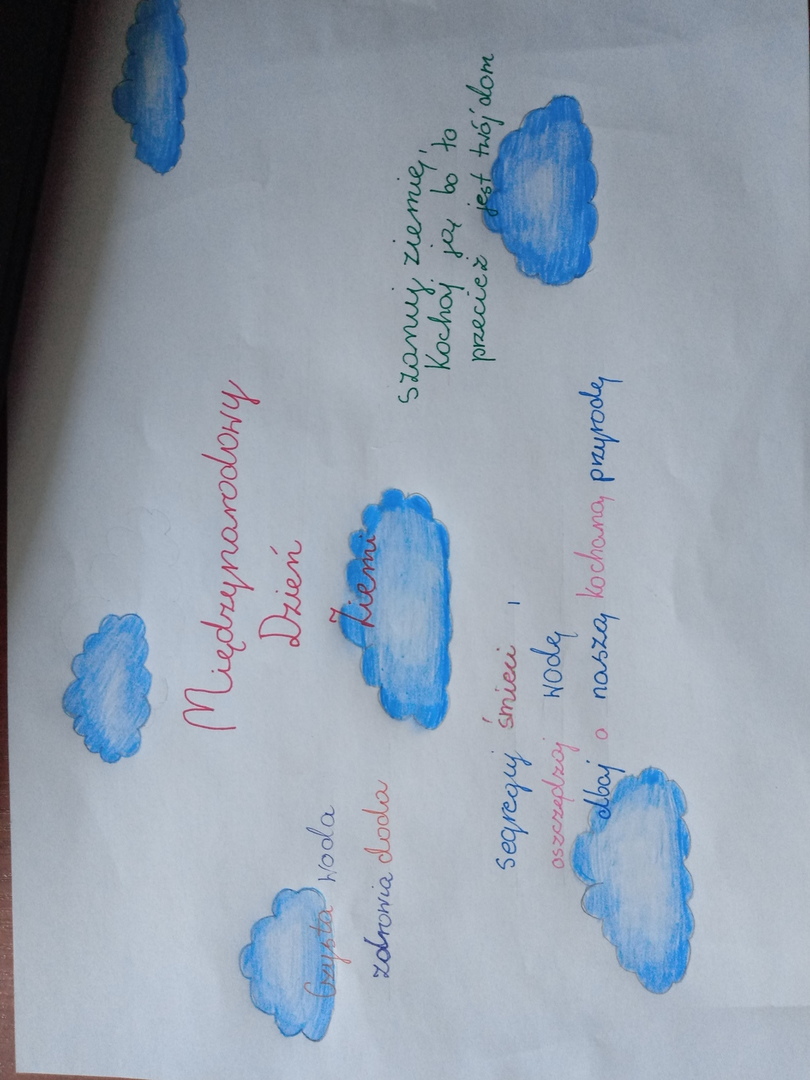 Międzynarodowy
Dzień
Ziemi
Czysta woda
zdrowia doda
Szanuj ziemię,
kochaj ją bo to
przecież jest twój dom
segreguj śmieci,
oszczędzaj wodę
dbaj o naszą kochaną przyrodę